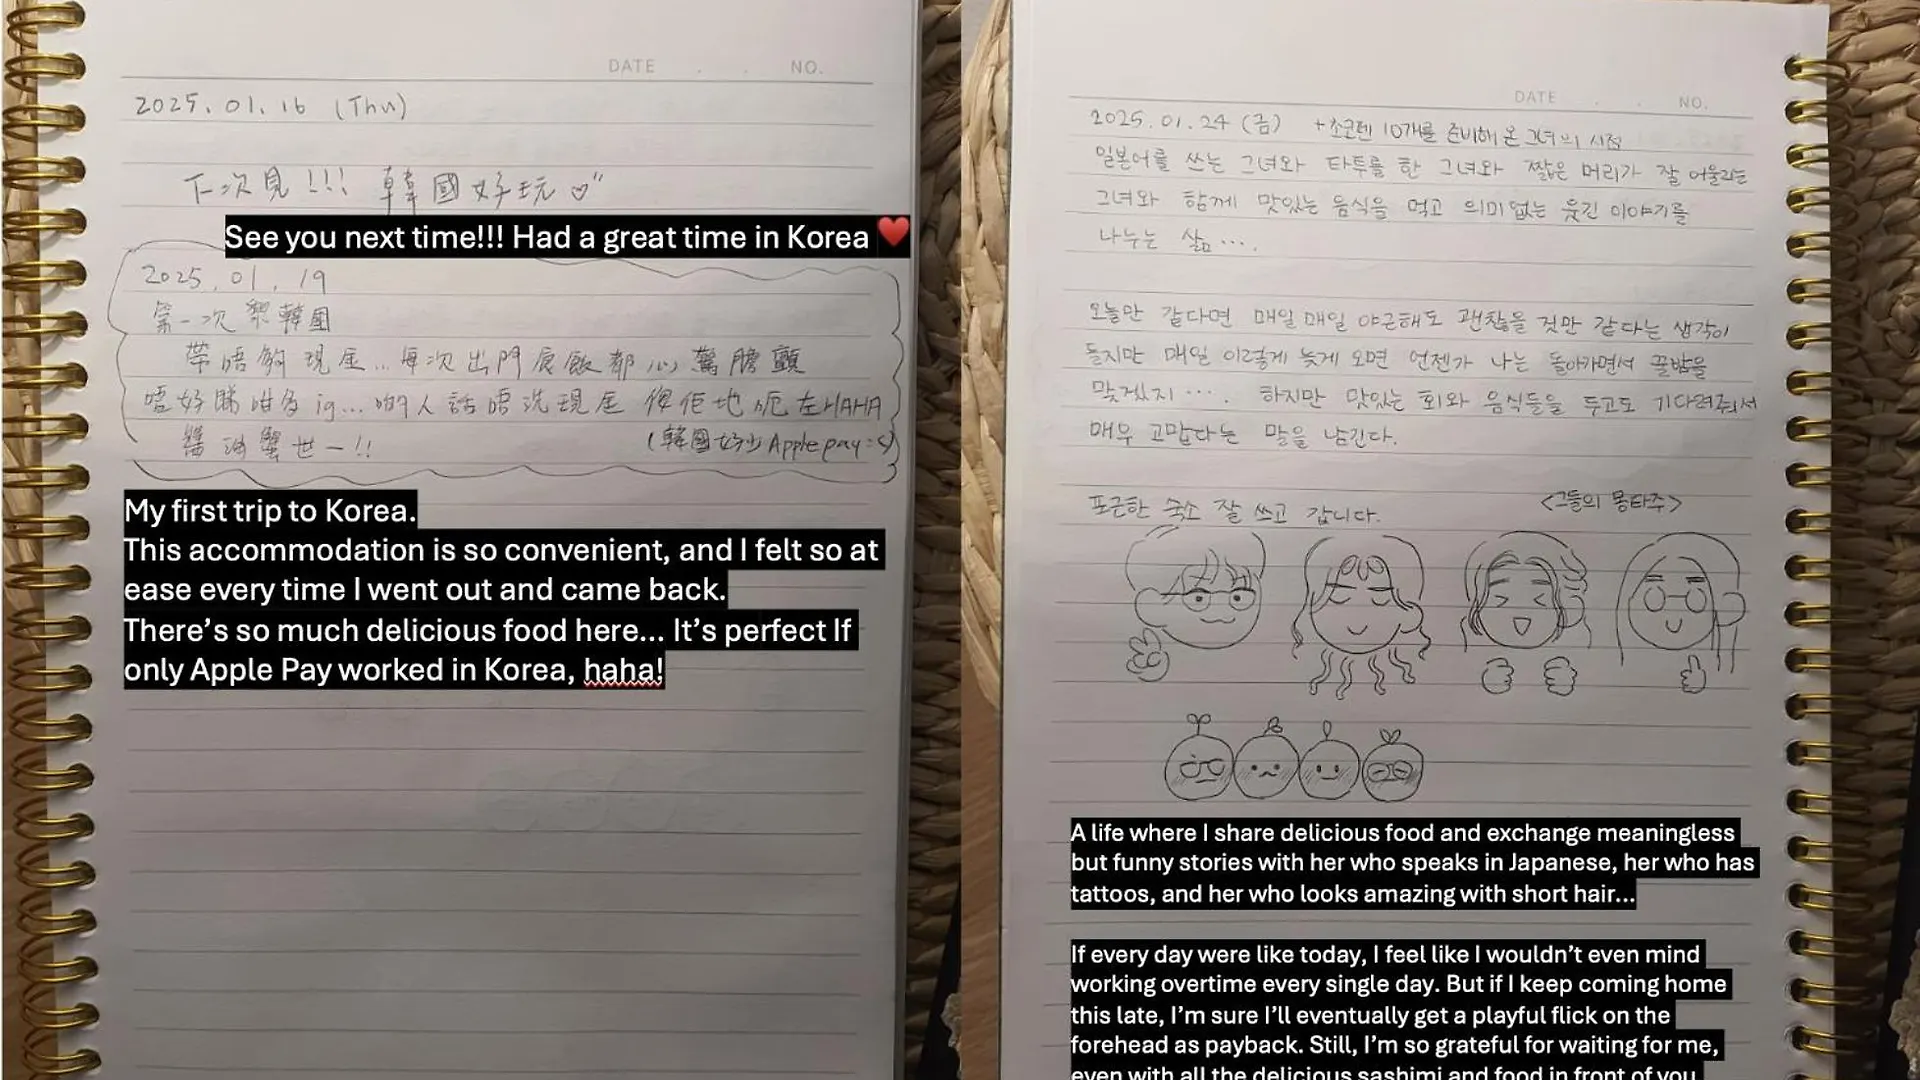 DATE . . NO.
2025. 01. 16 (Thu)
下次見!!! 韓國好玩♡"
See you next time!!! Had a great time in Korea ❤️
2025. 01. 19
第一次黎韓國
帶唔夠現金...每次出門食飯都心驚膽顫
唔好睇咁多 ig... 啲人話唔洗現金 俾佢地呃左HAHA
醬油蟹世一!!
(韓國好少Apple pay:<)
My first trip to Korea.
This accommodation is so convenient, and I felt so at
ease every time I went out and came back.
There's so much delicious food here... It's perfect If
only Apple Pay worked in Korea, haha!
DATE . . NO.
2025. 01. 24 (금) +초코펜 10개를 준비해 온 그녀의 시점
일본어를 쓰는 그녀와 타투를 한 그녀와 짧은 머리가 잘 어울리는
그녀와 함께 맛있는 음식을 먹고 의미없는 웃긴 이야기를
나누는 삶....
오늘만 같다면 매일매일 야근해도 괜찮을 것만 같다는 생각이
들지만 매일 이렇게 늦게 오면 언젠가 나는 돌아가면서 꿀밤을
맞겠지.... 하지만 맛있는 회와 음식들을 두고도 기다려줘서
매우 고맙다는 말을 남긴다.
포근한 숙소 잘 쓰고 갑니다.
<그들의 몽타주>
A life where I share delicious food and exchange meaningless
but funny stories with her who speaks in Japanese, her who has
tattoos, and her who looks amazing with short hair...
If every day were like today, I feel like I wouldn't even mind
working overtime every single day. But if I keep coming home
this late, I'm sure I'll eventually get a playful flick on the
forehead as payback. Still, I'm so grateful for waiting for me,
even with all the delicious sashimi and food in front of you